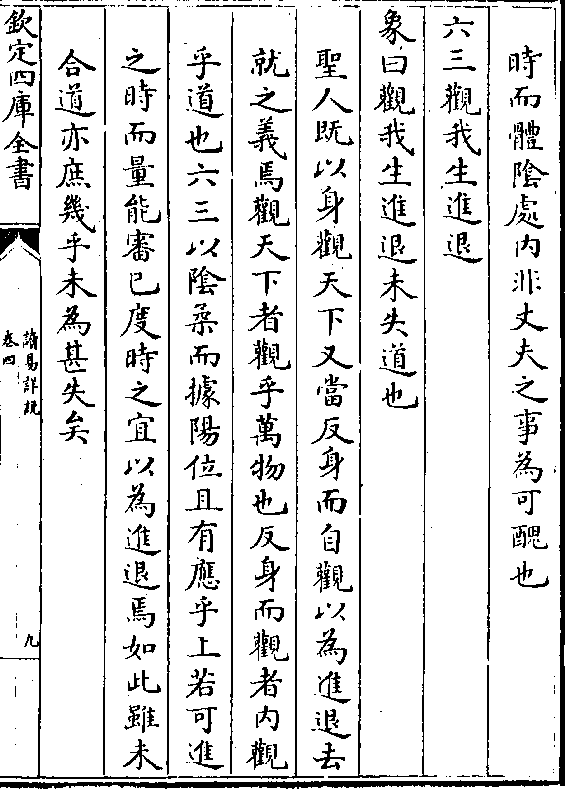 時而體陰處内非丈夫之事為可醜也
六三觀我生進退
象曰觀我生進退未失道也
聖人既以身觀天下又當反身而自觀以為進退去
就之義焉觀天下者觀乎萬物也反身而觀者内觀
乎道也六三以陰柔而據陽位且有應乎上若可進
之時而量能審已度時之宜以為進退焉如此雖未
合道亦庶幾乎未為甚失矣
欽定四庫全書
讀易詳說
卷四
九